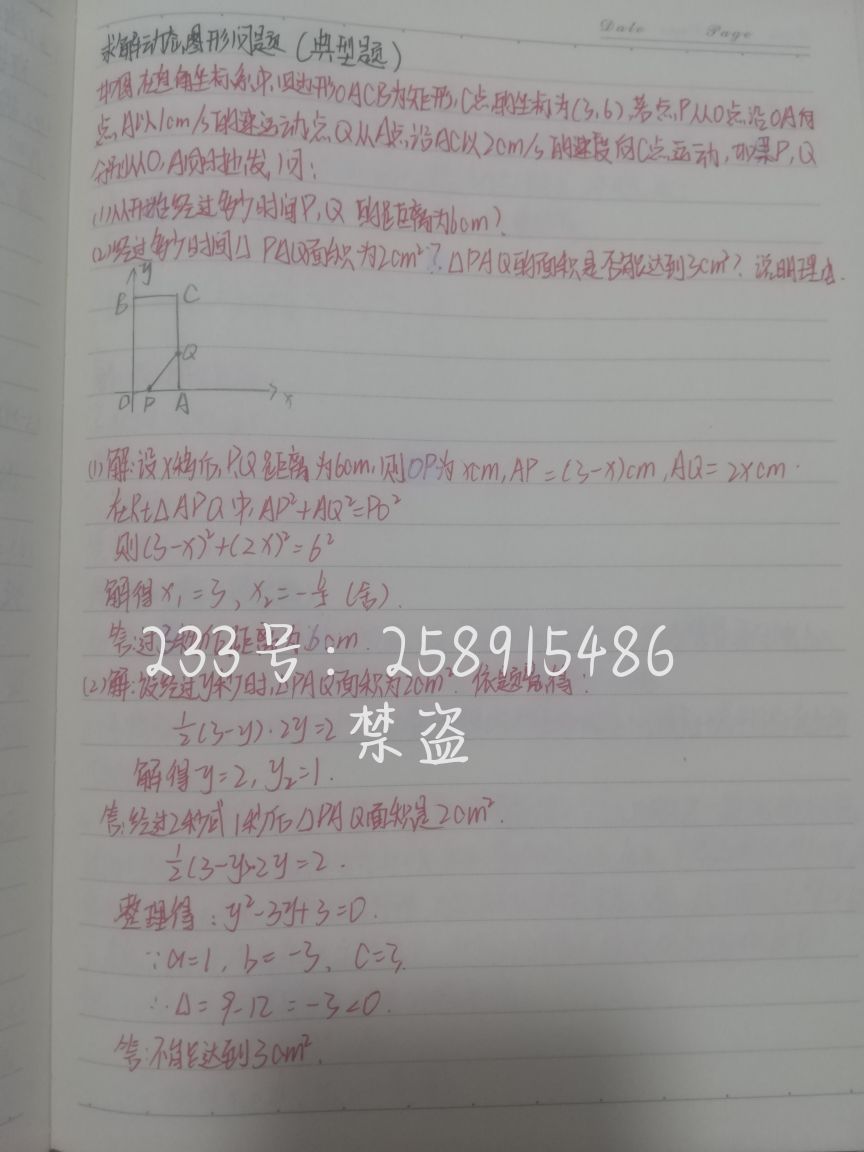 Date Page
求解动态图形问题(典型题)
如图在直角坐标系中,四边形OACB为矩形,C点的坐标为(3,6),若点P从O点沿OA向
点A以1cm/s的速运动点Q从A点沿AC以2cm/s的速度向C点运动,如果P,Q
分别从O,A同时出发,问:
(1)从开始经过多少时间P,Q的距离为6cm?
(2)经过多少时间△PAQ面积为2cm²?△PAQ的面积是否能达到3cm²?说明理由.
y
B C
Q
O P A x
(1)解:设x秒后,P,Q距离为6cm,则OP为xcm,AP=(3-x)cm,AQ=2xcm.
在Rt△APQ中,AP²+AQ²=PQ²
则(3-x)²+(2x)²=6²
解得x₁=3,x₂=- (舍).
答:过3秒后距离为6cm.
233号:258915486
(2)解:设经过y秒时,△PAQ面积为2cm².依题意得:
½(3-y)·2y=2
禁盗
解得y=2,y₂=1.
答:经过2秒或1秒后△PAQ面积是2cm².
½(3-y)·2y=2.
整理得:y²-3y+3=0.
∵a=1,b=-3,c=3,
∴△=9-12=-3<0.
答:不能达到3cm².